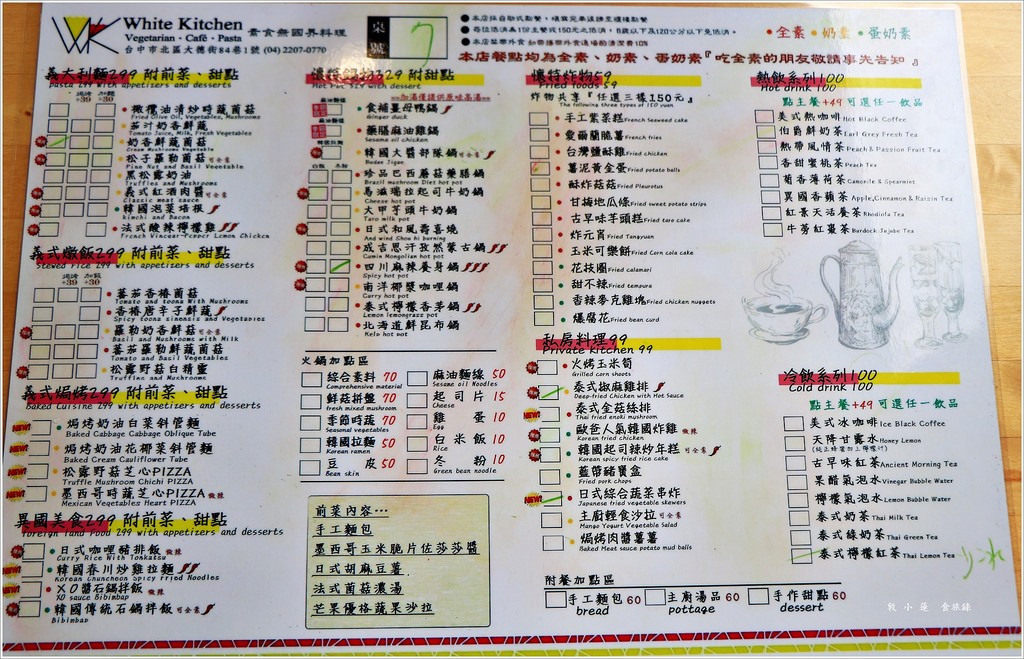 White Kitchen
Vegetarian · Cafe · Pasta 素食無國界料理
台中市北區大德街84巷1號 (04) 2207-0770
桌號 7
●全素 ●奶素 ●蛋奶素
本店餐點均為全素、奶素、蛋奶素『吃全素的朋友敬請事先告知』
義大利麵299 附前菜、甜點
pasta 299 with appetizers and desserts
+39 +30
橄欖油清炒時蔬菌菇
Fried Olive Oil, Vegetables, Mushrooms
茄汁奶香鮮蔬
Tomato Juice, Milk, Fresh Vegetables
奶香鮮蔬菌菇
Cream Mushrooms Vegetable
松子羅勒菌菇 可全素
Pine Nut and Basil Vegetable
黑松露奶油
Truffles and Mushrooms
義式紅酒肉醬 可全素
Classic meat sauce
韓國泡菜培根
kimchi and Bacon
法式酸辣檸檬雞
French Vinegar-Pepper Lemon Chicken
義式燉飯299 附前菜、甜點
Stewed rice 299 with appetizers and desserts
+39 +30
蕃茄香椿菌菇
Tomato and toona With Mushrooms
香椿唐辛子鮮蔬
Spicy toona sinensis and Vegetables
羅勒奶香鮮菇 可全素
Basil and Mushrooms with Milk
蕃茄羅勒鮮蔬菌菇
Tomato and Basil Vegetables
松露野菇白精靈
Truffles and Mushrooms
義式焗烤299 附前菜、甜點
Baked Cuisine 299 with appetizers and desserts
焗烤奶油白菜斜管麵
Baked Cabbage Cabbage Oblique Tube
焗烤奶油花椰菜斜管麵
Baked Cream Cauliflower Tube
松露野菇芝心PIZZA
Truffle Mushroom Chichi PIZZA
墨西哥時蔬芝心PIZZA
Mexican Vegetables Heart PIZZA
異國美食299 附前菜、甜點
foreign land food 299 with appetizers and desserts
日式咖哩豬排飯 微辣
Curry Rice With Tonkatsu
韓國春川炒雞拉麵
Korean Chuncheon Spicy Fried Noodles
XO醬石鍋拌飯 微辣
XO sauce Bibimbap
韓國傳統石鍋拌飯 可全素
Bibimbap
懷特鍋物329 附甜點
Hot Pot 329 with dessert
食補薑母鴨鍋
Ginger duck
藥膳麻油雞鍋
Sesame oil chicken
韓國火醬部隊鍋 可全素
Budae Jigae
珍品巴西蘑菇藥膳鍋
Brazil mushroom Diet hot pot
馬滋瑞拉起司牛奶鍋
Cheese hot pot
大甲芋頭牛奶鍋
Taro milk pot
日式和風壽喜燒
And wind Show hi burning
成吉思汗孜然蒙古鍋
Cumin Mongolian hot pot
四川麻辣養身鍋
Spicy hot pot
南洋椰漿咖哩鍋
Curry hot pot
泰式檸檬香茅鍋
Lemon lemongrass pot
北海道鮮昆布鍋
Kelp hot pot
火鍋加點區
綜合素料 70
Comprehensive material
鮮菇拼盤 70
fresh mixed mushroom
季節時蔬 70
Seasonal vegetables
韓國拉麵 50
Korean ramen
豆皮 50
Bean skin
麻油麵線 50
Sesame oil Noodles
起司片 15
Cheese
雞蛋 10
Egg
白米飯 10
Rice
冬粉 10
Green bean noodle
前菜內容...
手工麵包
墨西哥玉米脆片佐莎莎醬
日式胡麻豆薯
法式菌菇濃湯
芒果優格蔬果沙拉
懷特炸物59
Fried foods 59
炸物共享『任選三樣150元』
The following three types of 150 yuan
手工紫菜糕 French Seaweed cake
愛爾蘭脆薯 French fries
台灣鹽酥雞 Fried chicken
薯泥黃金蛋 Fried potato balls
酥炸菇菇 Fried Pleurotus
甘梅地瓜條 Fried sweet potato strips
古早味芋頭糕 Fried taro cake
炸元宵 Fried Tangyuan
玉米可樂餅 Fried Corn cola cake
花枝圈 Fried calamari
甜不辣 Fried tempura
香辣麥克雞塊 Fried chicken nuggets
爆腐花 Fried bean curd
私房料理99
Private kitchen 99
火烤玉米筍
Grilled corn shoots
泰式椒麻雞排
Deep-fried Chicken with Hot Sauce
泰式金菇絲排
Thai fried enoki mushroom
歐爸人氣韓國炸雞 微辣
Korean fried chicken
韓國起司辣炒年糕 可全素
Korean spicy fried rice cake
藍帶豬寶盒
Fried pork chops
日式綜合蔬菜串炸
Japanese fried vegetable skewers
主廚輕食沙拉 可全素
Mango Yogurt Vegetable Salad
焗烤肉醬薯薯
Baked Meat sauce potato mud balls
附餐加點區
手工麵包 60
bread
主廚湯品 60
pottage
手作甜點 60
dessert
熱飲系列100
Hot drink 100
點主餐+49 可選任一飲品
美式熱咖啡 Hot Black Coffee
伯爵鮮奶茶 Earl Grey Fresh Tea
熱帶風情茶 Peach & Passion Fruit Tea
香甜蜜桃茶 Peach Tea
菊香薄荷茶 Camomile & Spearmint
異國香蘋茶 Apple, Cinnamon & Raisin Tea
紅景天活養茶 Rhodiola Tea
牛蒡紅棗茶 Burdock Jujube Tea
冷飲系列100
Cold drink 100
點主餐+49 可選任一飲品
美式冰咖啡 Ice Black Coffee
天降甘露水 Honey Lemon
古早味紅茶 Ancient Morning Tea
果醋氣泡水 Vinegar Bubble Water
檸檬氣泡水 Lemon Bubble Water
泰式奶茶 Thai Milk Tea
泰式綠奶茶 Thai Green Tea
泰式檸檬紅茶 Thai Lemon Tea
少冰